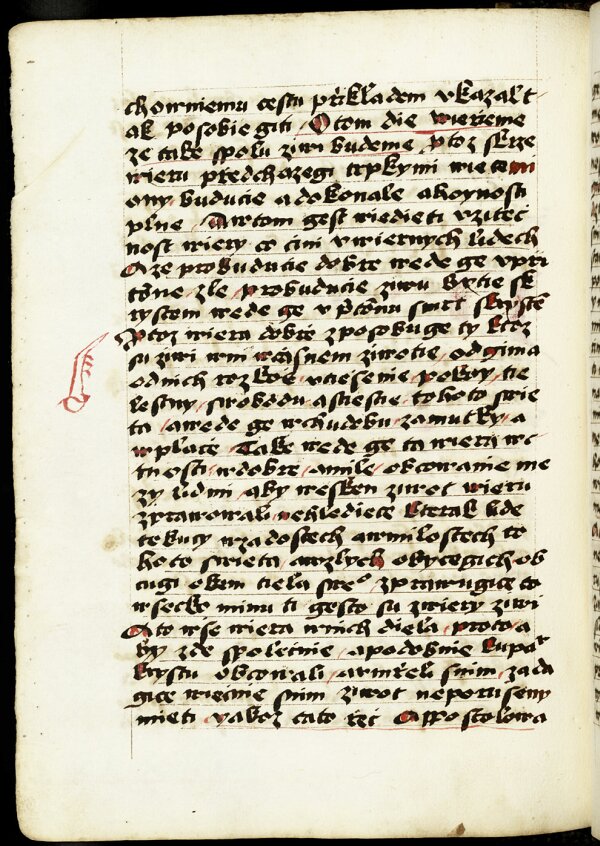 chowniemu cestu přikladem vkazal t
ak posobie giti O tom die wierzeme
ze take spolu ziwi budeme ptoz skrze
wieru předchazegi trpkymi wiecemi
ony buducie a dokonale a hoynosti
plne A w tom gest wiedieti vzitec
nost wiery co cini v wiernych lidech
A ze probuducie dobre wede ge v pri
tomne zle probuducie ziwu bytie s k
rystem wede ge v smrt s krystem
Ptoz wiera dobře zposobuge ty ktoz
su ziwi w ni w casnem ziwotie odgima
od nich rozkose vtiesenie pokoy tie
lestny swobodu a stiestie tohoto swie
ta a wede ge w chudobu zamutky a
w place Take wede ge ta wiera w c
tnosti w dobre a mile obcowanie me
zy lidmi aby wesken ziwot wieru
zprawowali nehlediece kterak lide
tekucy w zadostech a w milostech to
hoto swieta a w zlych obycegich ob
cugi okem tiela sweo zprawugice to
wsecko minu ti gesto su z wiery ziwi
A to wse wiera w nich diela proto a
by zde spolecnie a podobnie ku pa
krystu obcowali a w umřeli s nim zada
gice wiecnie s nim ziwot neporuseny
mieti yakoz tato řec Appostolowa